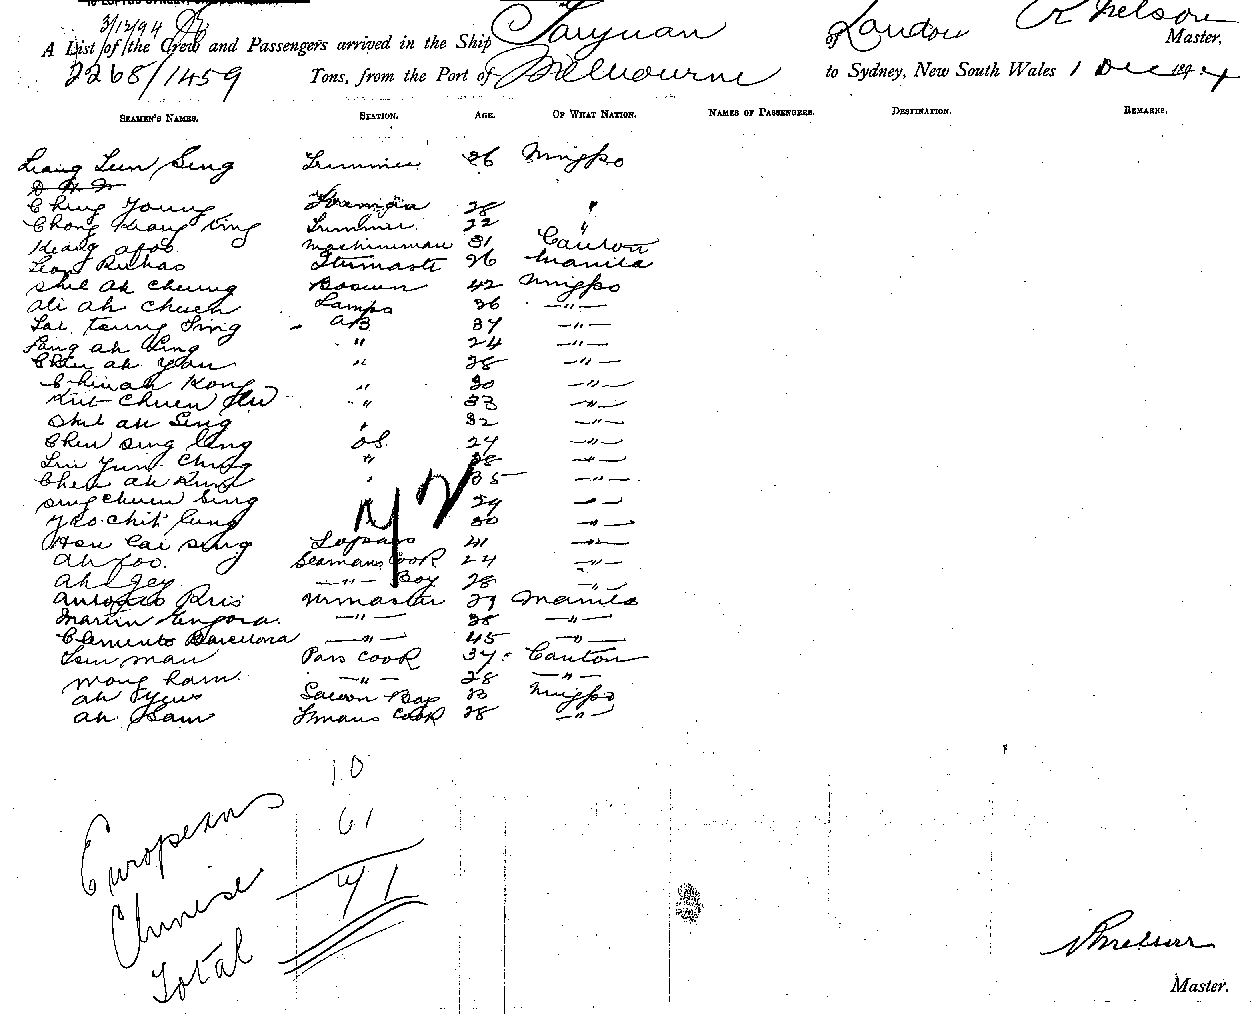 3/12/94
A List of the Crew and Passengers arrived in the Ship Taiyuan of London R Nelson Master,
2268/1459 Tons, from the Port of Melbourne to Sydney, New South Wales 1 Dec 1894
SEAMEN'S NAMES. STATION. AGE. OF WHAT NATION. NAMES OF PASSENGERS. DESTINATION. REMARKS.
Leang Sun Sing Trimmer 26 Ningpo
Ching Young Fireman 28 "
Chong Kang Ling Trimmer 22 "
Keang afoo Machineman 31 Canton
26 Manila
Shil ah Cheung Boswn 42 Ningpo
ali ah Chuen Lamps 36 —"—
Lai Teung Sing AB 37 —"—
Fang ah Ling " 24 —"—
Chen ah Yan " 28 —"—
Chin ah Kong " 30 —"—
Kut Chuen " 33 —"—
Shil ah Sing " 32 —"—
Chen Sing Ling OS 27 —"—
Lin Yun Ching " 28 —"—
Chen ah Kung " 35 —"—
Sing Chuen Sing " 29 —"—
Yao Chik Lung " 30 —"—
Hsu Cai Sing 41 —"—
42
Ah foo. Seamans Cook 24 —"—
Ah Gey —"— Boy 28 —"—
29 Manila
Martin —"— 38 —"—
Clemento Barcelona —"— 45 —"—
Sun man Pass Cook 37 Canton
Wong ham —"— 28 —"—
Ah Yeus Saloon Boy 23 Ningpo
Ah Sam Fmans Cook 28 —"—
Europeans 10
Chinese 61
Total 71
R Nelson
Master.